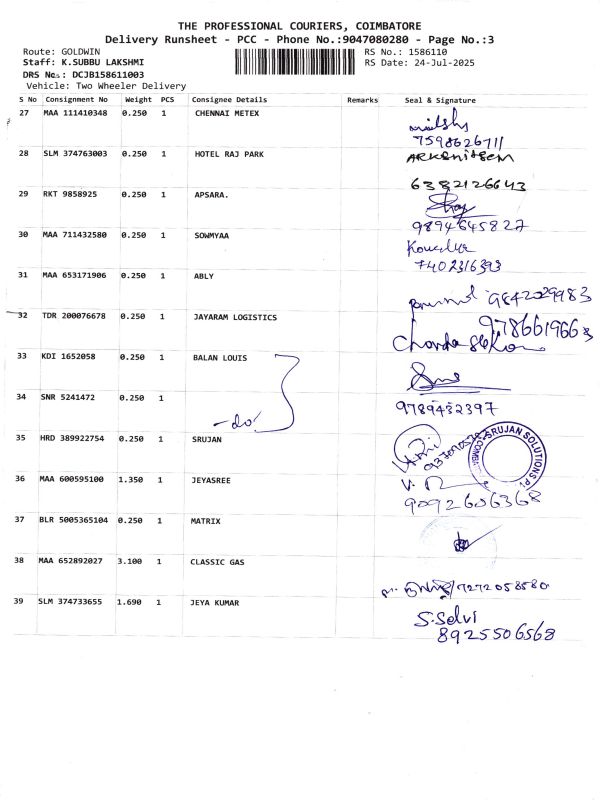 THE PROFESSIONAL COURIERS, COIMBATORE
Delivery Runsheet - PCC - Phone No.:9047080280 - Page No.:3
Route: GOLDWIN RS No.: 1586110
Staff: K.SUBBU LAKSHMI RS Date: 24-Jul-2025
DRS No.: DCJB158611003
Vehicle: Two Wheeler Delivery
S No Consignment No Weight PCS Consignee Details Remarks Seal & Signature
27 MAA 111410348 0.250 1 CHENNAI METEX
7598626711
28 SLM 374763003 0.250 1 HOTEL RAJ PARK
6382126643
29 RKT 9858925 0.250 1 APSARA.
9894645827
30 MAA 711432580 0.250 1 SOWMYAA
7402316393
31 MAA 653171906 0.250 1 ABLY
9842029983
32 TDR 200076678 0.250 1 JAYARAM LOGISTICS
9786619663
33 KDI 1652058 0.250 1 BALAN LOUIS
34 SNR 5241472 0.250 1
9789432397
-do-
35 HRD 389922754 0.250 1 SRUJAN
SRUJAN SOLUTIONS
36 MAA 600595100 1.350 1 JEYASREE
9092606368
37 BLR 5005365104 0.250 1 MATRIX
38 MAA 652892027 3.100 1 CLASSIC GAS
7272058580
39 SLM 374733655 1.690 1 JEYA KUMAR
S.Selvi
8925506568